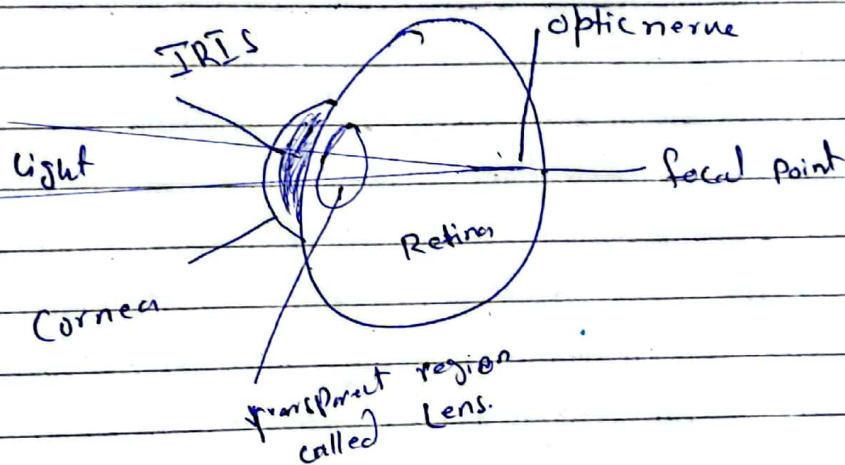 Optic nerve
IRIS
light
focal point
Retina
Cornea
transparent region
called Lens.